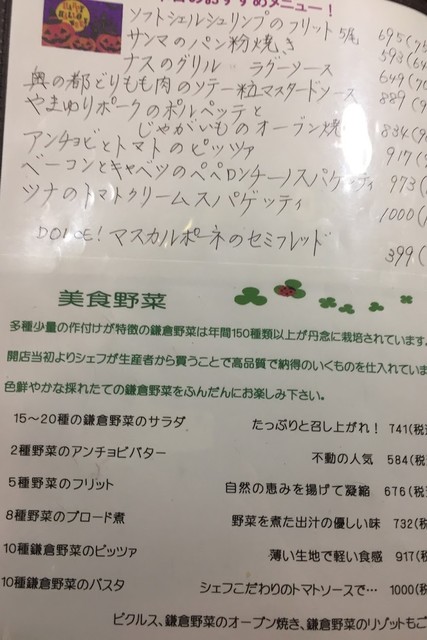 のおすすめメニュー！
ソフトシェルシュリンプのフリット 5尾 695(75
サンマのパン粉焼き 593(64
ナスのグリル ラグーソース 649(70
奥の都どりもも肉のソテー粒マスタードソース 889(9
やまゆりポークのポルペッテと
じゃがいものオーブン焼 834(90
アンチョビとトマトのピッツァ 917(9
ベーコンとキャベツのペペロンチーノスパゲッティ 973(
ツナのトマトクリームスパゲッティ 1000(1
DOLCE! マスカルポーネのセミフレッド 399(
美食野菜
多種少量の作付けが特徴の鎌倉野菜は年間150種類以上が丹念に栽培されています。
開店当初よりシェフが生産者から買うことで高品質で納得のいくものを仕入れていま
色鮮やかな採れたての鎌倉野菜をふんだんにお楽しみ下さい。
15～20種の鎌倉野菜のサラダ たっぷりと召し上がれ！ 741(税
2種野菜のアンチョビバター 不動の人気 584(税
5種野菜のフリット 自然の恵みを揚げて凝縮 676(税
8種野菜のブロード煮 野菜を煮た出汁の優しい味 732(税
10種鎌倉野菜のピッツァ 薄い生地で軽い食感 917(税
10種鎌倉野菜のパスタ シェフこだわりのトマトソースで… 1000(税
ピクルス、鎌倉野菜のオーブン焼き、鎌倉野菜のリゾットもご